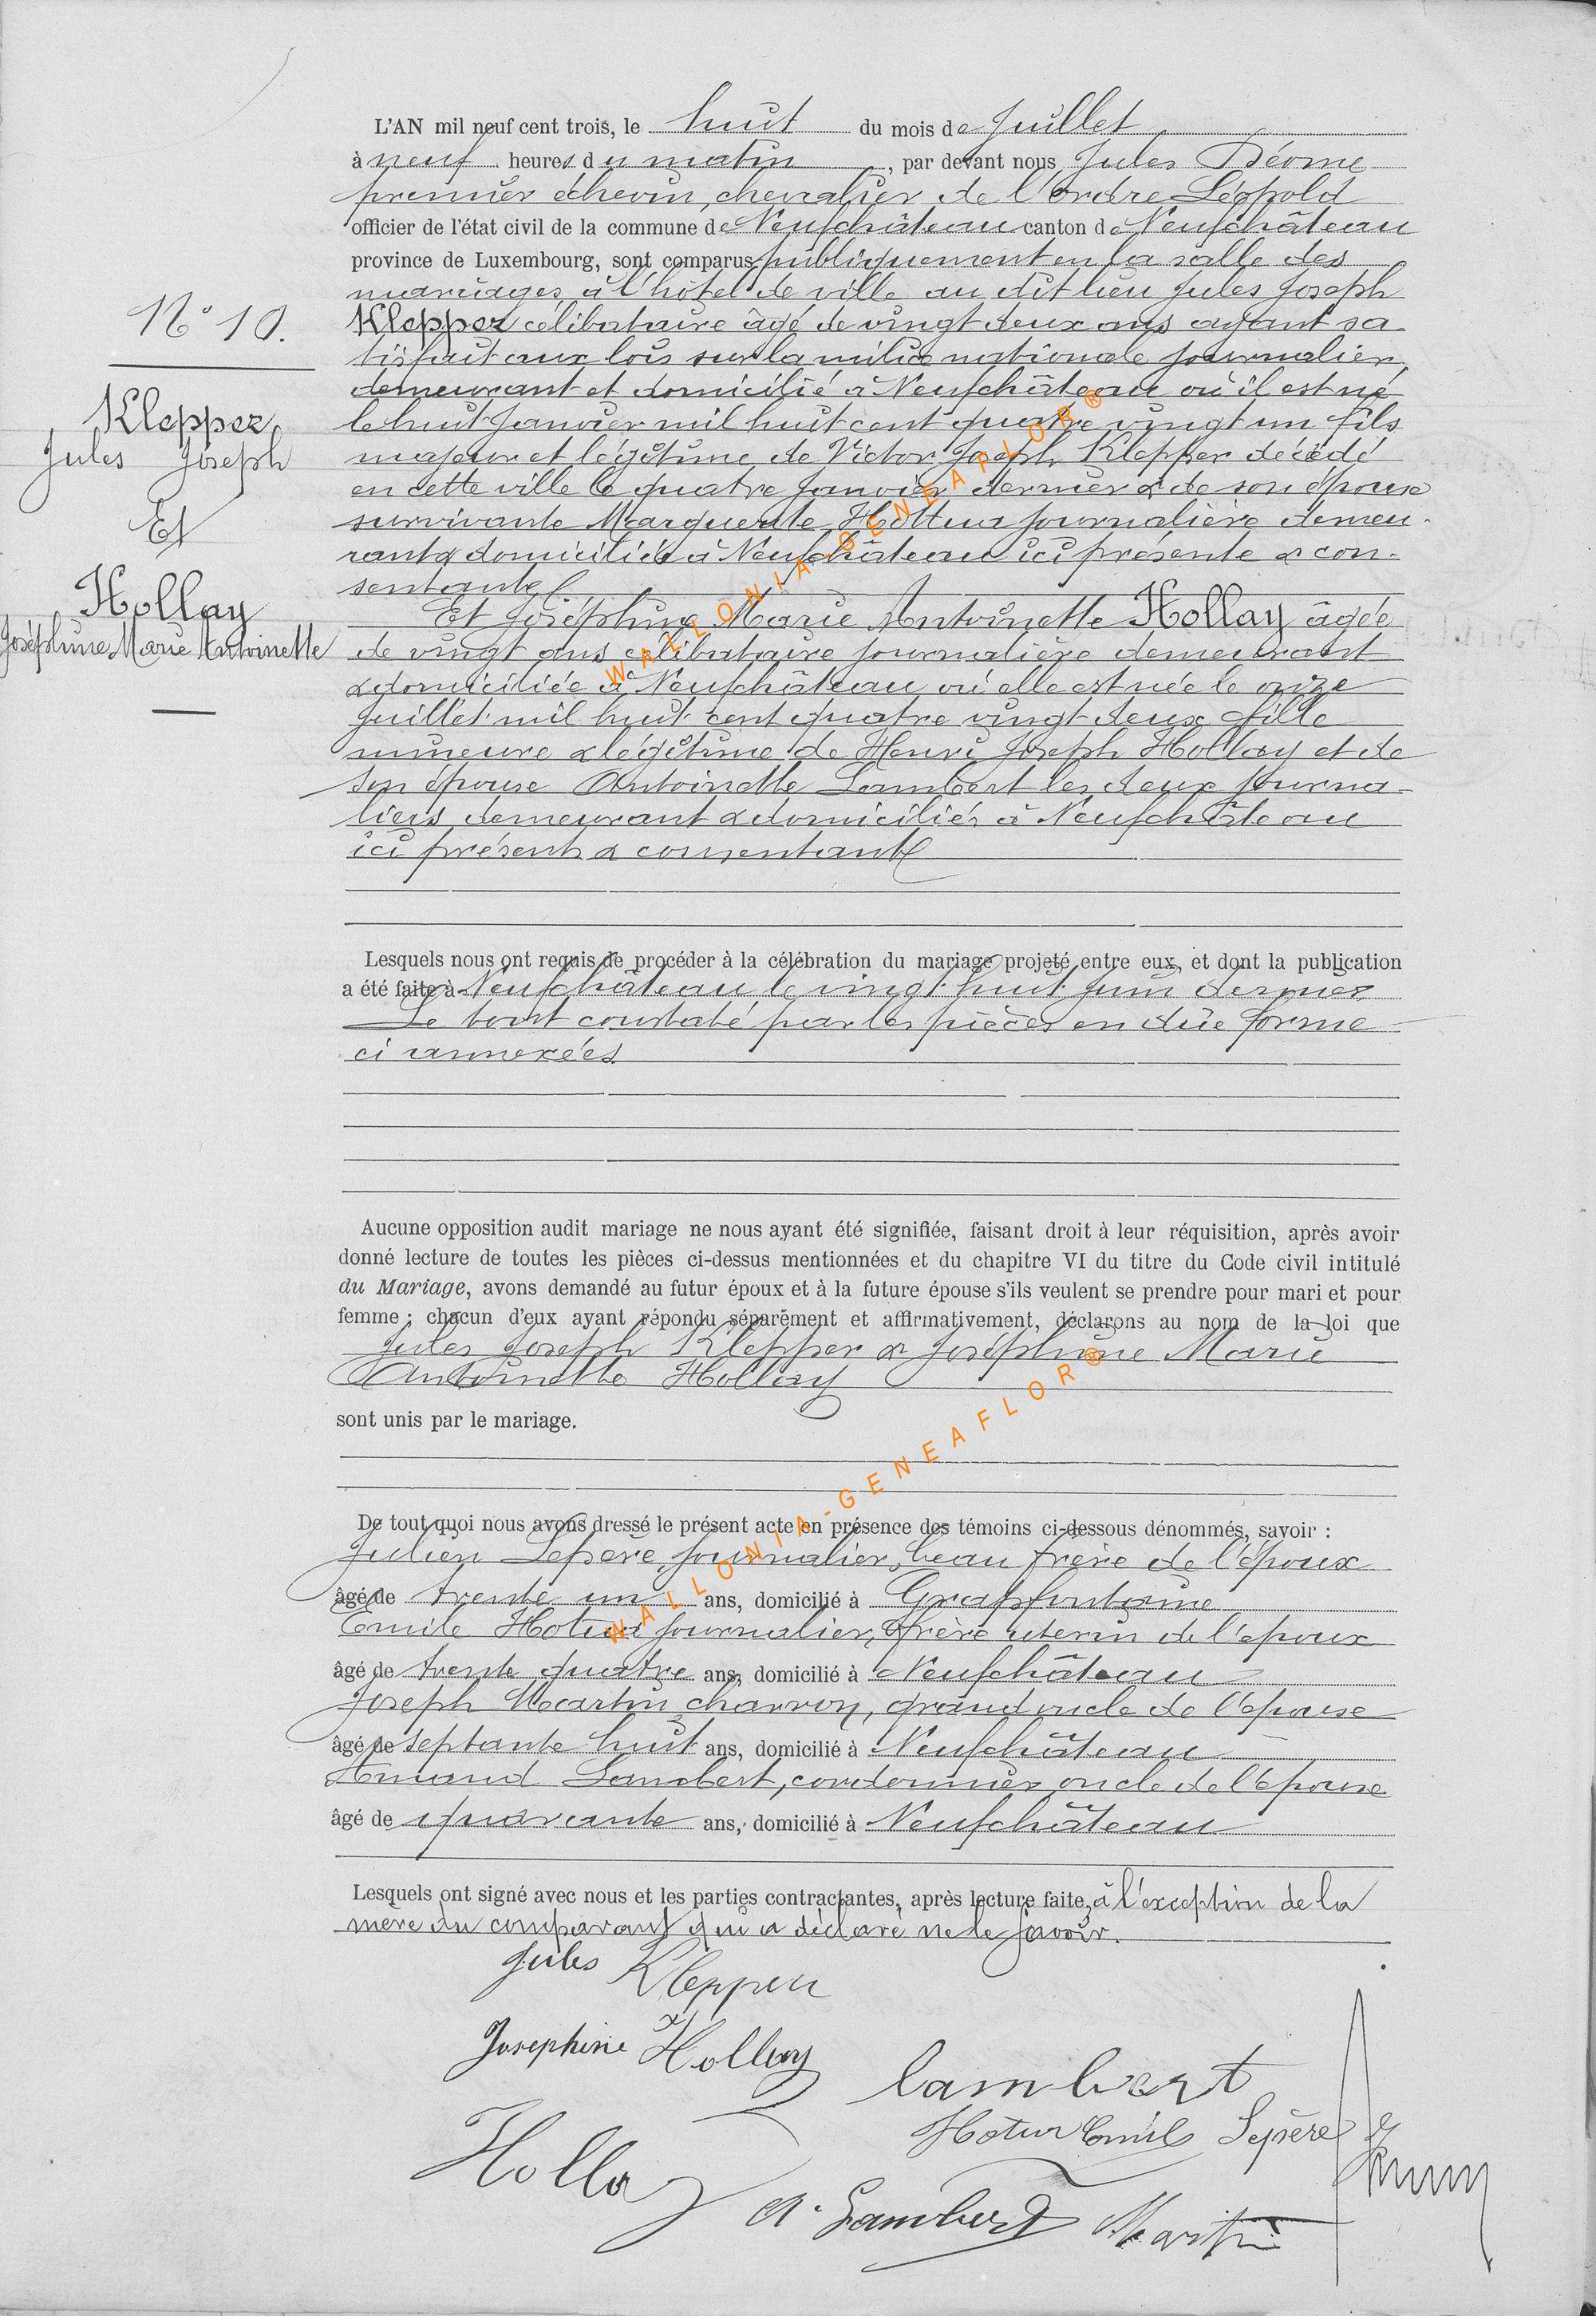 L'AN mil neuf cent trois, le huit du mois de Juillet
à neuf heures du matin, par devant nous Jules Déome
premier échevin, chevalier de l'ordre Léopold
officier de l'état civil de la commune de Neufchâteau canton de Neufchâteau
province de Luxembourg, sont comparus publiquement en la salle des
mariages à l'hôtel de ville au dit lieu Jules Joseph
N° 10. Klepper célibataire âgé de vingt deux ans ayant sa
tisfait aux lois sur la milice nationale journalier,
demeurant et domicilié à Neufchâteau où il est né
Klepper le huit Janvier mil huit cent quatre vingt un fils
Jules Joseph majeur et légitime de Victor Joseph Klepper décédé
en cette ville le quatre Janvier dernier & de son épouse
Et survivante Marguerite Hottua journalière demeu-
rant & domiciliée à Neufchâteau ici présente & con-
Hollay sentante
Et Joséphine Marie Antoinette Hollay âgée
Joséphine Marie Antoinette de vingt ans célibataire journalière demeurant
& domiciliée à Neufchâteau où elle est née le onze
Juillet mil huit cent quatre vingt deux fille
mineure & légitime de Henri Joseph Hollay et de
son épouse Antoinette Lambert les deux journa-
liers demeurant & domiciliés à Neufchâteau
ici présents & consentants
Lesquels nous ont requis de procéder à la célébration du mariage projeté entre eux, et dont la publication
a été faite à Neufchâteau le vingt huit Juin dernier
Le tout constaté par les pièces en due forme
ci annexées
Aucune opposition audit mariage ne nous ayant été signifiée, faisant droit à leur réquisition, après avoir
donné lecture de toutes les pièces ci-dessus mentionnées et du chapitre VI du titre du Code civil intitulé
du Mariage, avons demandé au futur époux et à la future épouse s'ils veulent se prendre pour mari et pour
femme ; chacun d'eux ayant répondu séparément et affirmativement, déclarons au nom de la loi que
Jules Joseph Klepper & Joséphine Marie
Antoinette Hollay
sont unis par le mariage.
De tout quoi nous avons dressé le présent acte en présence des témoins ci-dessous dénommés, savoir :
Julien Lepère, journalier, beau frère de l'époux
âgé de trente un ans, domicilié à Grapfontaine
Emile Hotua journalier, frère uterin de l'epoux
âgé de trente quatre ans, domicilié à Neufchâteau
Joseph Martin charron, grand oncle de l'epouse
âgé de septante huit ans, domicilié à Neufchâteau
Amand Lambert, cordonnier oncle de l'epouse
âgé de quarante ans, domicilié à Neufchâteau
Lesquels ont signé avec nous et les parties contractantes, après lecture faite, à l'exception de la
mère du comparant qui a déclaré ne le savoir.
Jules Kleppeu
Josephine Hollay
lambert
Hotua Emile Lepère
Hollay
A. Lambert Martin
WALLONIA-GENEAFLOR®
WALLONIA-GENEAFLOR®